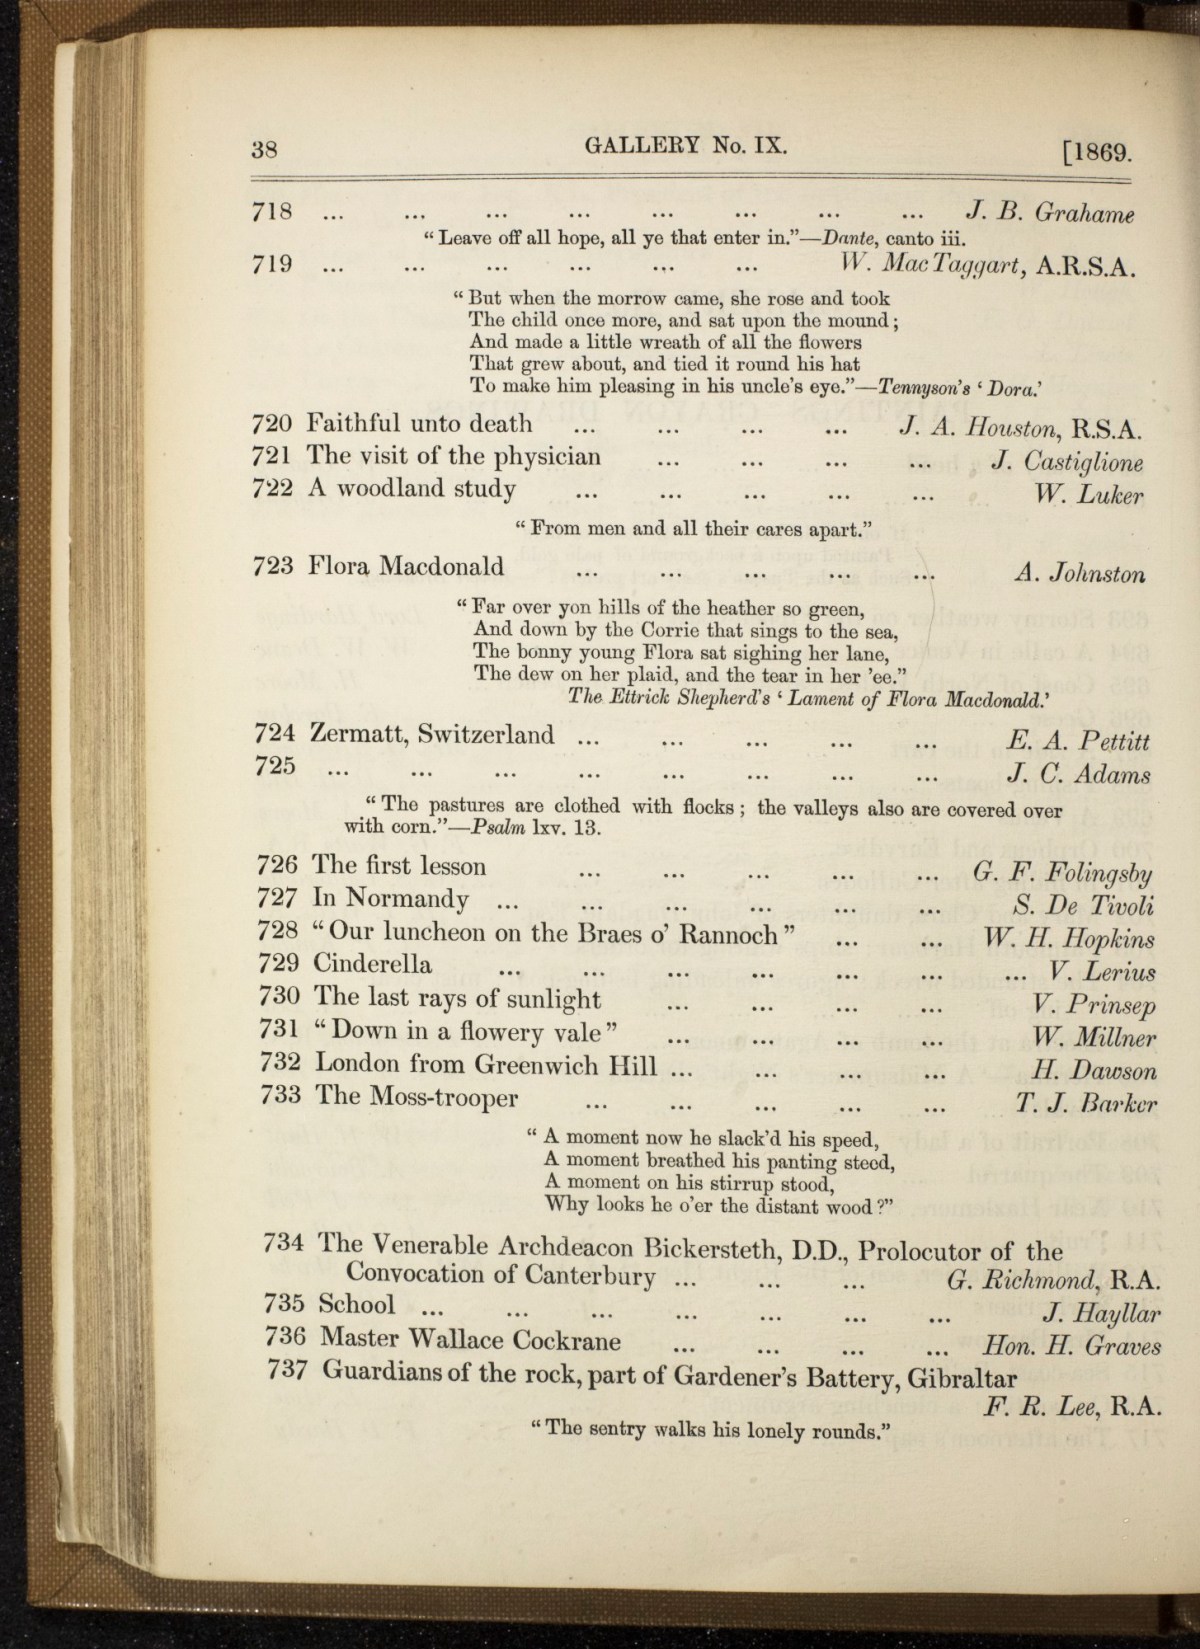 38 GALLERY No. IX. [1869.
718 ... ... ... ... ... ... ... ... J. B. Grahame
“Leave off all hope, all ye that enter in.”—Dante, canto iii.
719 ... ... ... ... ... ... W. MacTaggart, A.R.S.A.
“But when the morrow came, she rose and took
The child once more, and sat upon the mound;
And made a little wreath of all the flowers
That grew about, and tied it round his hat
To make him pleasing in his uncle's eye.”—Tennyson's ‘Dora.’
720 Faithful unto death ... ... ... ... J. A. Houston, R.S.A.
721 The visit of the physician ... ... ... ... J. Castiglione
722 A woodland study ... ... ... ... ... W. Luker
“From men and all their cares apart.”
723 Flora Macdonald ... ... ... ... ... A. Johnston
“Far over yon hills of the heather so green,
And down by the Corrie that sings to the sea,
The bonny young Flora sat sighing her lane,
The dew on her plaid, and the tear in her 'ee.”
The Ettrick Shepherd's ‘Lament of Flora Macdonald.’
724 Zermatt, Switzerland ... ... ... ... ... E. A. Pettitt
725 ... ... ... ... ... ... ... ... J. C. Adams
“The pastures are clothed with flocks; the valleys also are covered over
with corn.”—Psalm lxv. 13.
726 The first lesson ... ... ... ... ... G. F. Folingsby
727 In Normandy ... ... ... ... ... ... S. De Tivoli
728 “Our luncheon on the Braes o' Rannoch” ... ... W. H. Hopkins
729 Cinderella ... ... ... ... ... ... ... V. Lerius
730 The last rays of sunlight ... ... ... ... V. Prinsep
731 “Down in a flowery vale” ... ... ... ... W. Millner
732 London from Greenwich Hill ... ... ... ... H. Dawson
733 The Moss-trooper ... ... ... ... ... T. J. Barker
“A moment now he slack'd his speed,
A moment breathed his panting steed,
A moment on his stirrup stood,
Why looks he o'er the distant wood?”
734 The Venerable Archdeacon Bickersteth, D.D., Prolocutor of the
Convocation of Canterbury ... ... ... G. Richmond, R.A.
735 School ... ... ... ... ... ... ... J. Hayllar
736 Master Wallace Cockrane ... ... ... ... Hon. H. Graves
737 Guardians of the rock, part of Gardener's Battery, Gibraltar
F. R. Lee, R.A.
“The sentry walks his lonely rounds.”